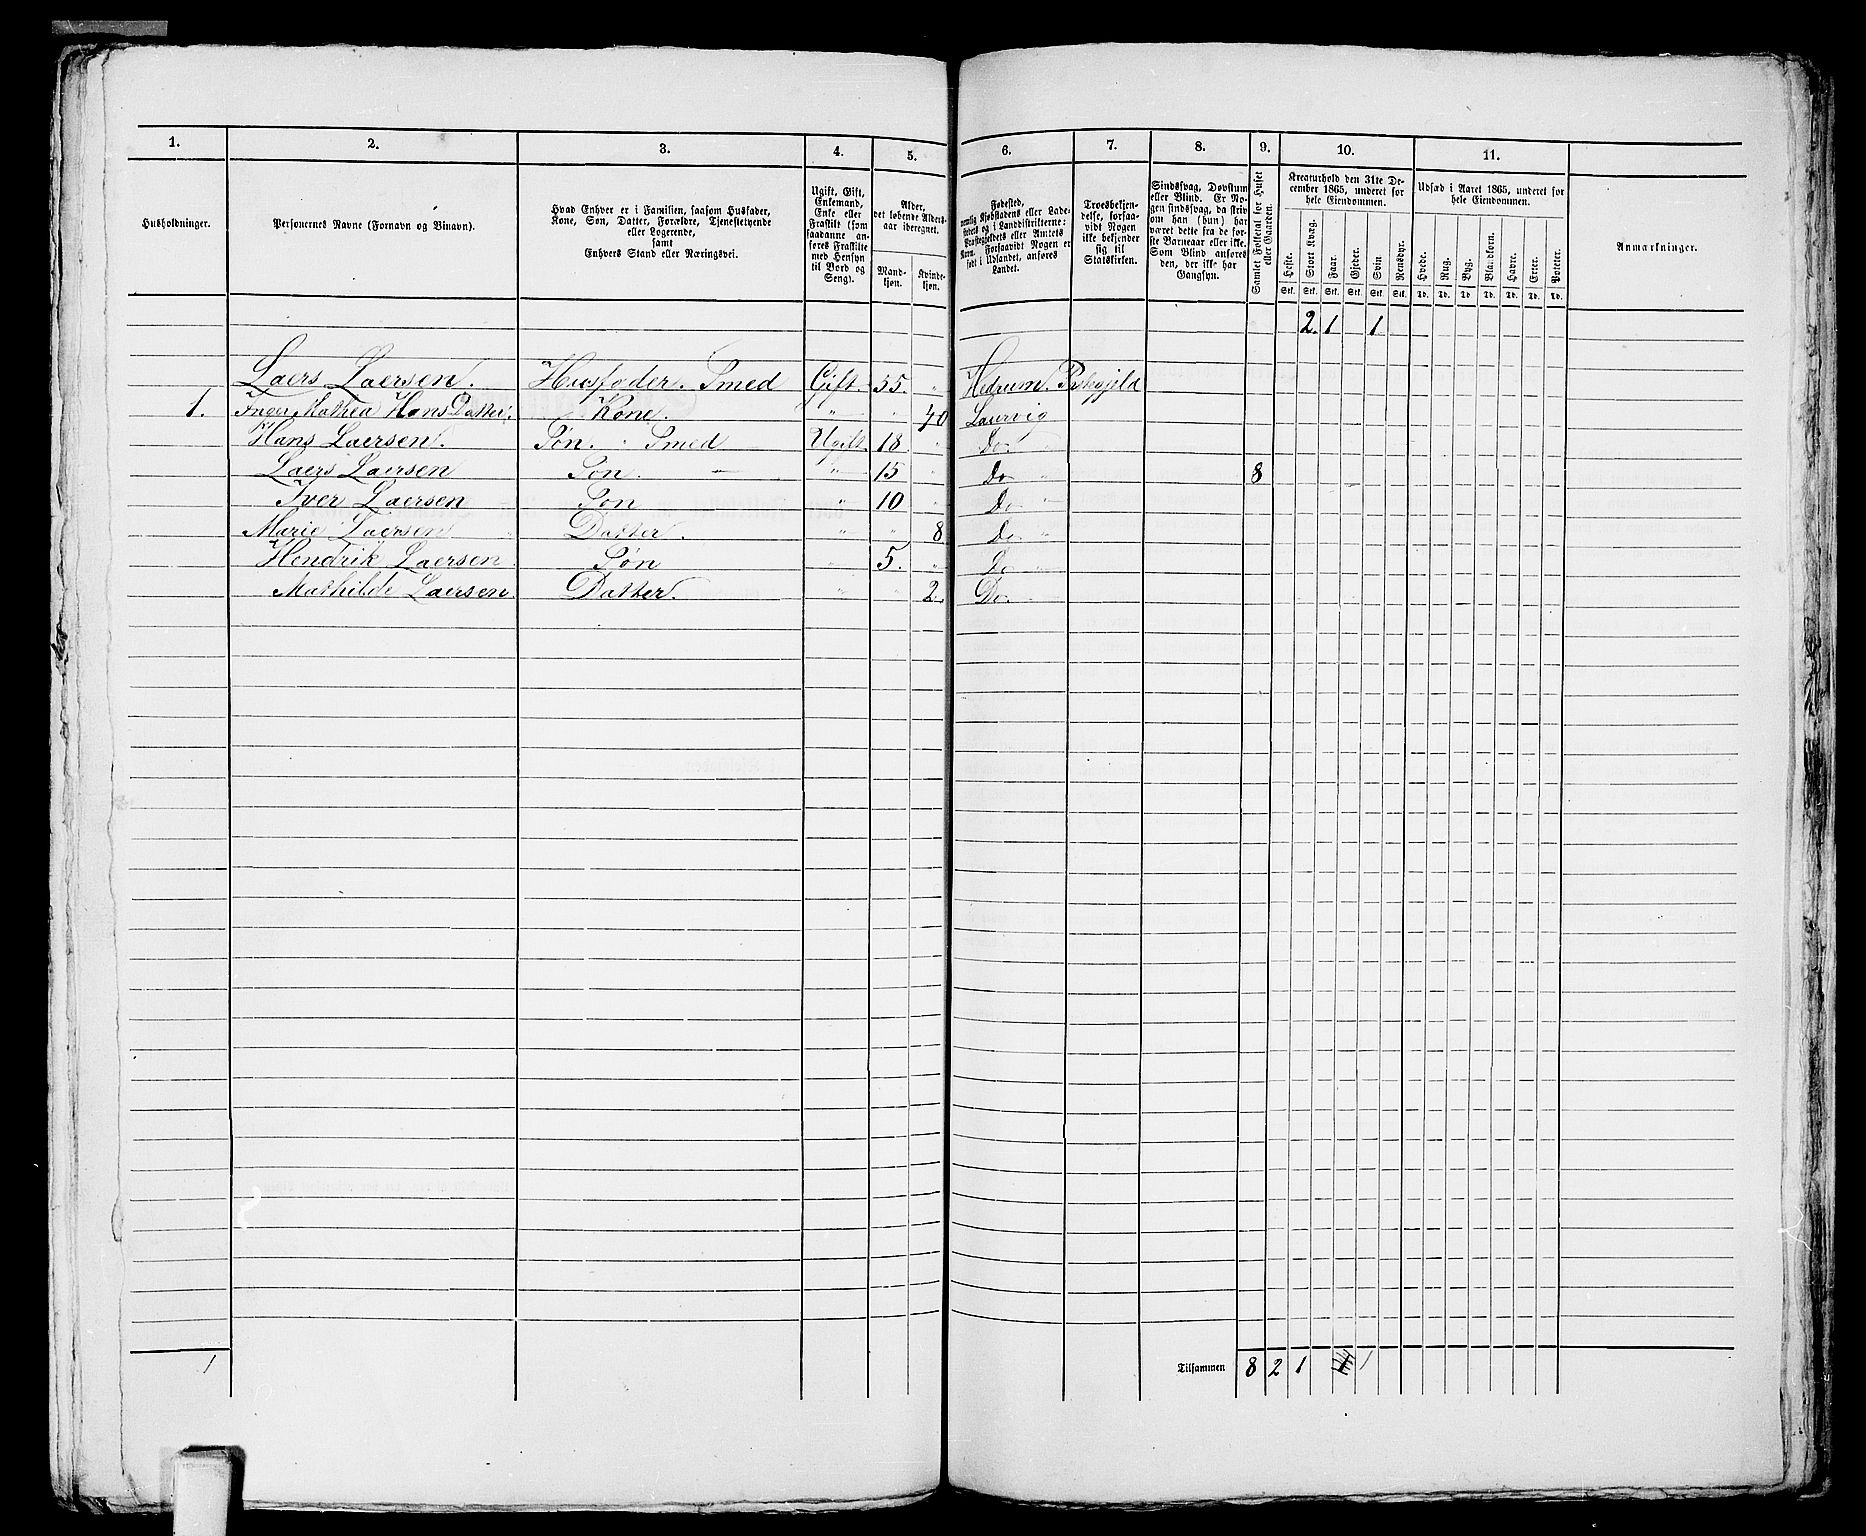 1. 2. 3. 4. 5. 6. 7. 8. 9. 10. 11.
Husholdninger.
Personernes Navne (Fornavn og Binavn).
Hvad Enhver er i Familien, saasom Husfader,
Kone, Søn, Datter, Forældre, Tjenestetyende
eller Logerende,
samt
Enhvers Stand eller Næringsvei.
Ugift, Gift,
Enkemand,
Enke eller
Fraskilt (som
saadanne an-
føres Fraskilte
med Hensyn
til Bord og
Seng).
Alder,
det løbende Alders-
aar iberegnet.
Mand-
kjøn.
Kvinde-
kjøn.
Fødested,
nemlig Kjøbstadens eller Lade-
stedets og i Landdistrikterne:
Præstegjeldets eller Amtets
Navn. Forsaavidt Nogen er
født i Udlandet, anføres
Landet.
Troesbekjen-
delse, forsaa-
vidt Nogen
ikke bekjender
sig til
Statskirken.
Sindssvag, Døvstum
eller Blind. Er No-
gen sindssvag, da skriv
om han (hun) har
været dette fra de før-
ste Barneaar eller ikke.
Som Blind anføres
den, der ikke har
Gangsyn.
Samlet Folketal for Huset
eller Gaarden.
Kreaturhold den 31te De-
cember 1865, underet for
hele Eiendommen.
Heste. Stort Kvæg. Faar. Gjeder. Svin. Rensdyr.
Stk. Stk. Stk. Stk. Stk. Stk.
Udsæd i Aaret 1865, underet for
hele Eiendommen.
Hvede. Rug. Byg. Blandkorn. Havre. Erter. Poteter.
Td. Td. Td. Td. Td. Td. Td.
Anmærkninger.
2. 1 1
Laers Laersen. Husfader. Smed Gift. 55. " Hedrum. Prstgjeld
1. Inger Mathea Hans Datter. Kone. " " 40 Laurvig
Hans Laersen. Søn. Smed Ugift 18 " Do
Laers Laersen Søn. " 15 " Do " 8
Iver Laersen Søn " 10 " Do "
Marie Laersen Datter. " " 8. Do "
Hendrik Laersen Søn " 5. " Do "
Mathilde Laersen. Datter. " " 2. Do.
1 Tilsammen 8 2 1 1